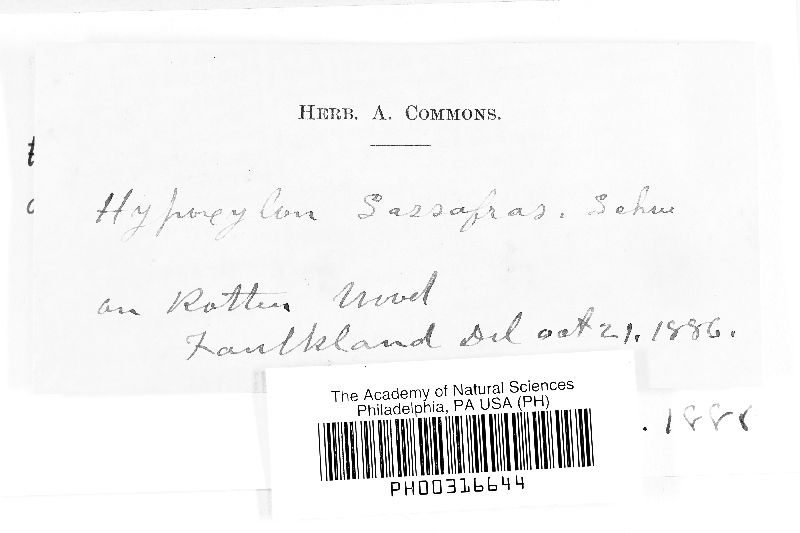 HERB. A. COMMONS.
Hypoxylon Sassafras. Schw
on Rotten Wood
Faulkland Del oct 21. 1886.
. 1886
The Academy of Natural Sciences
Philadelphia, PA USA (PH)
PH00316644